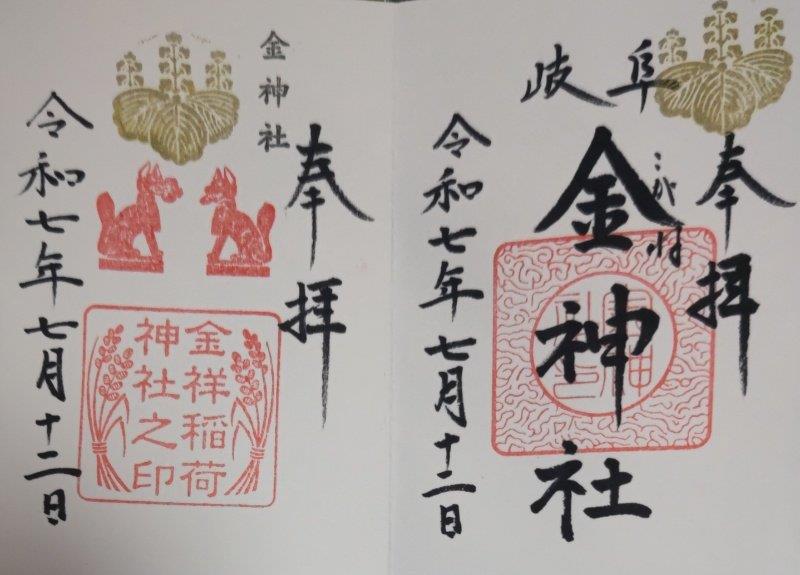 奉拝
岐阜
こがね
金神社
令和七年七月十二日
奉拝
金神社
金祥稲荷
神社之印
令和七年七月十二日